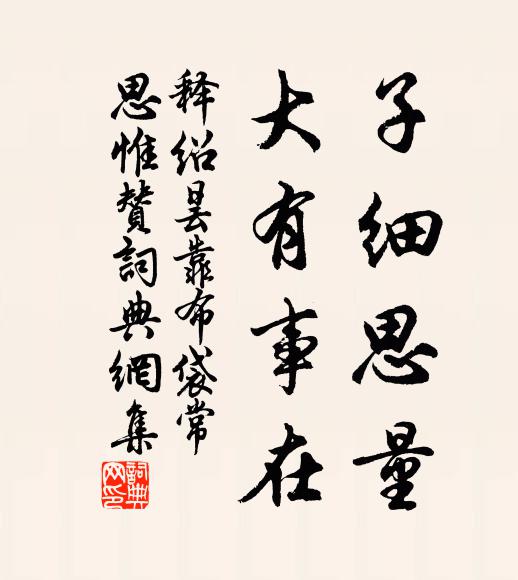 子细思量
大有事在
释绍昙靠布袋常
思惟赞词典網集
詞典
网印